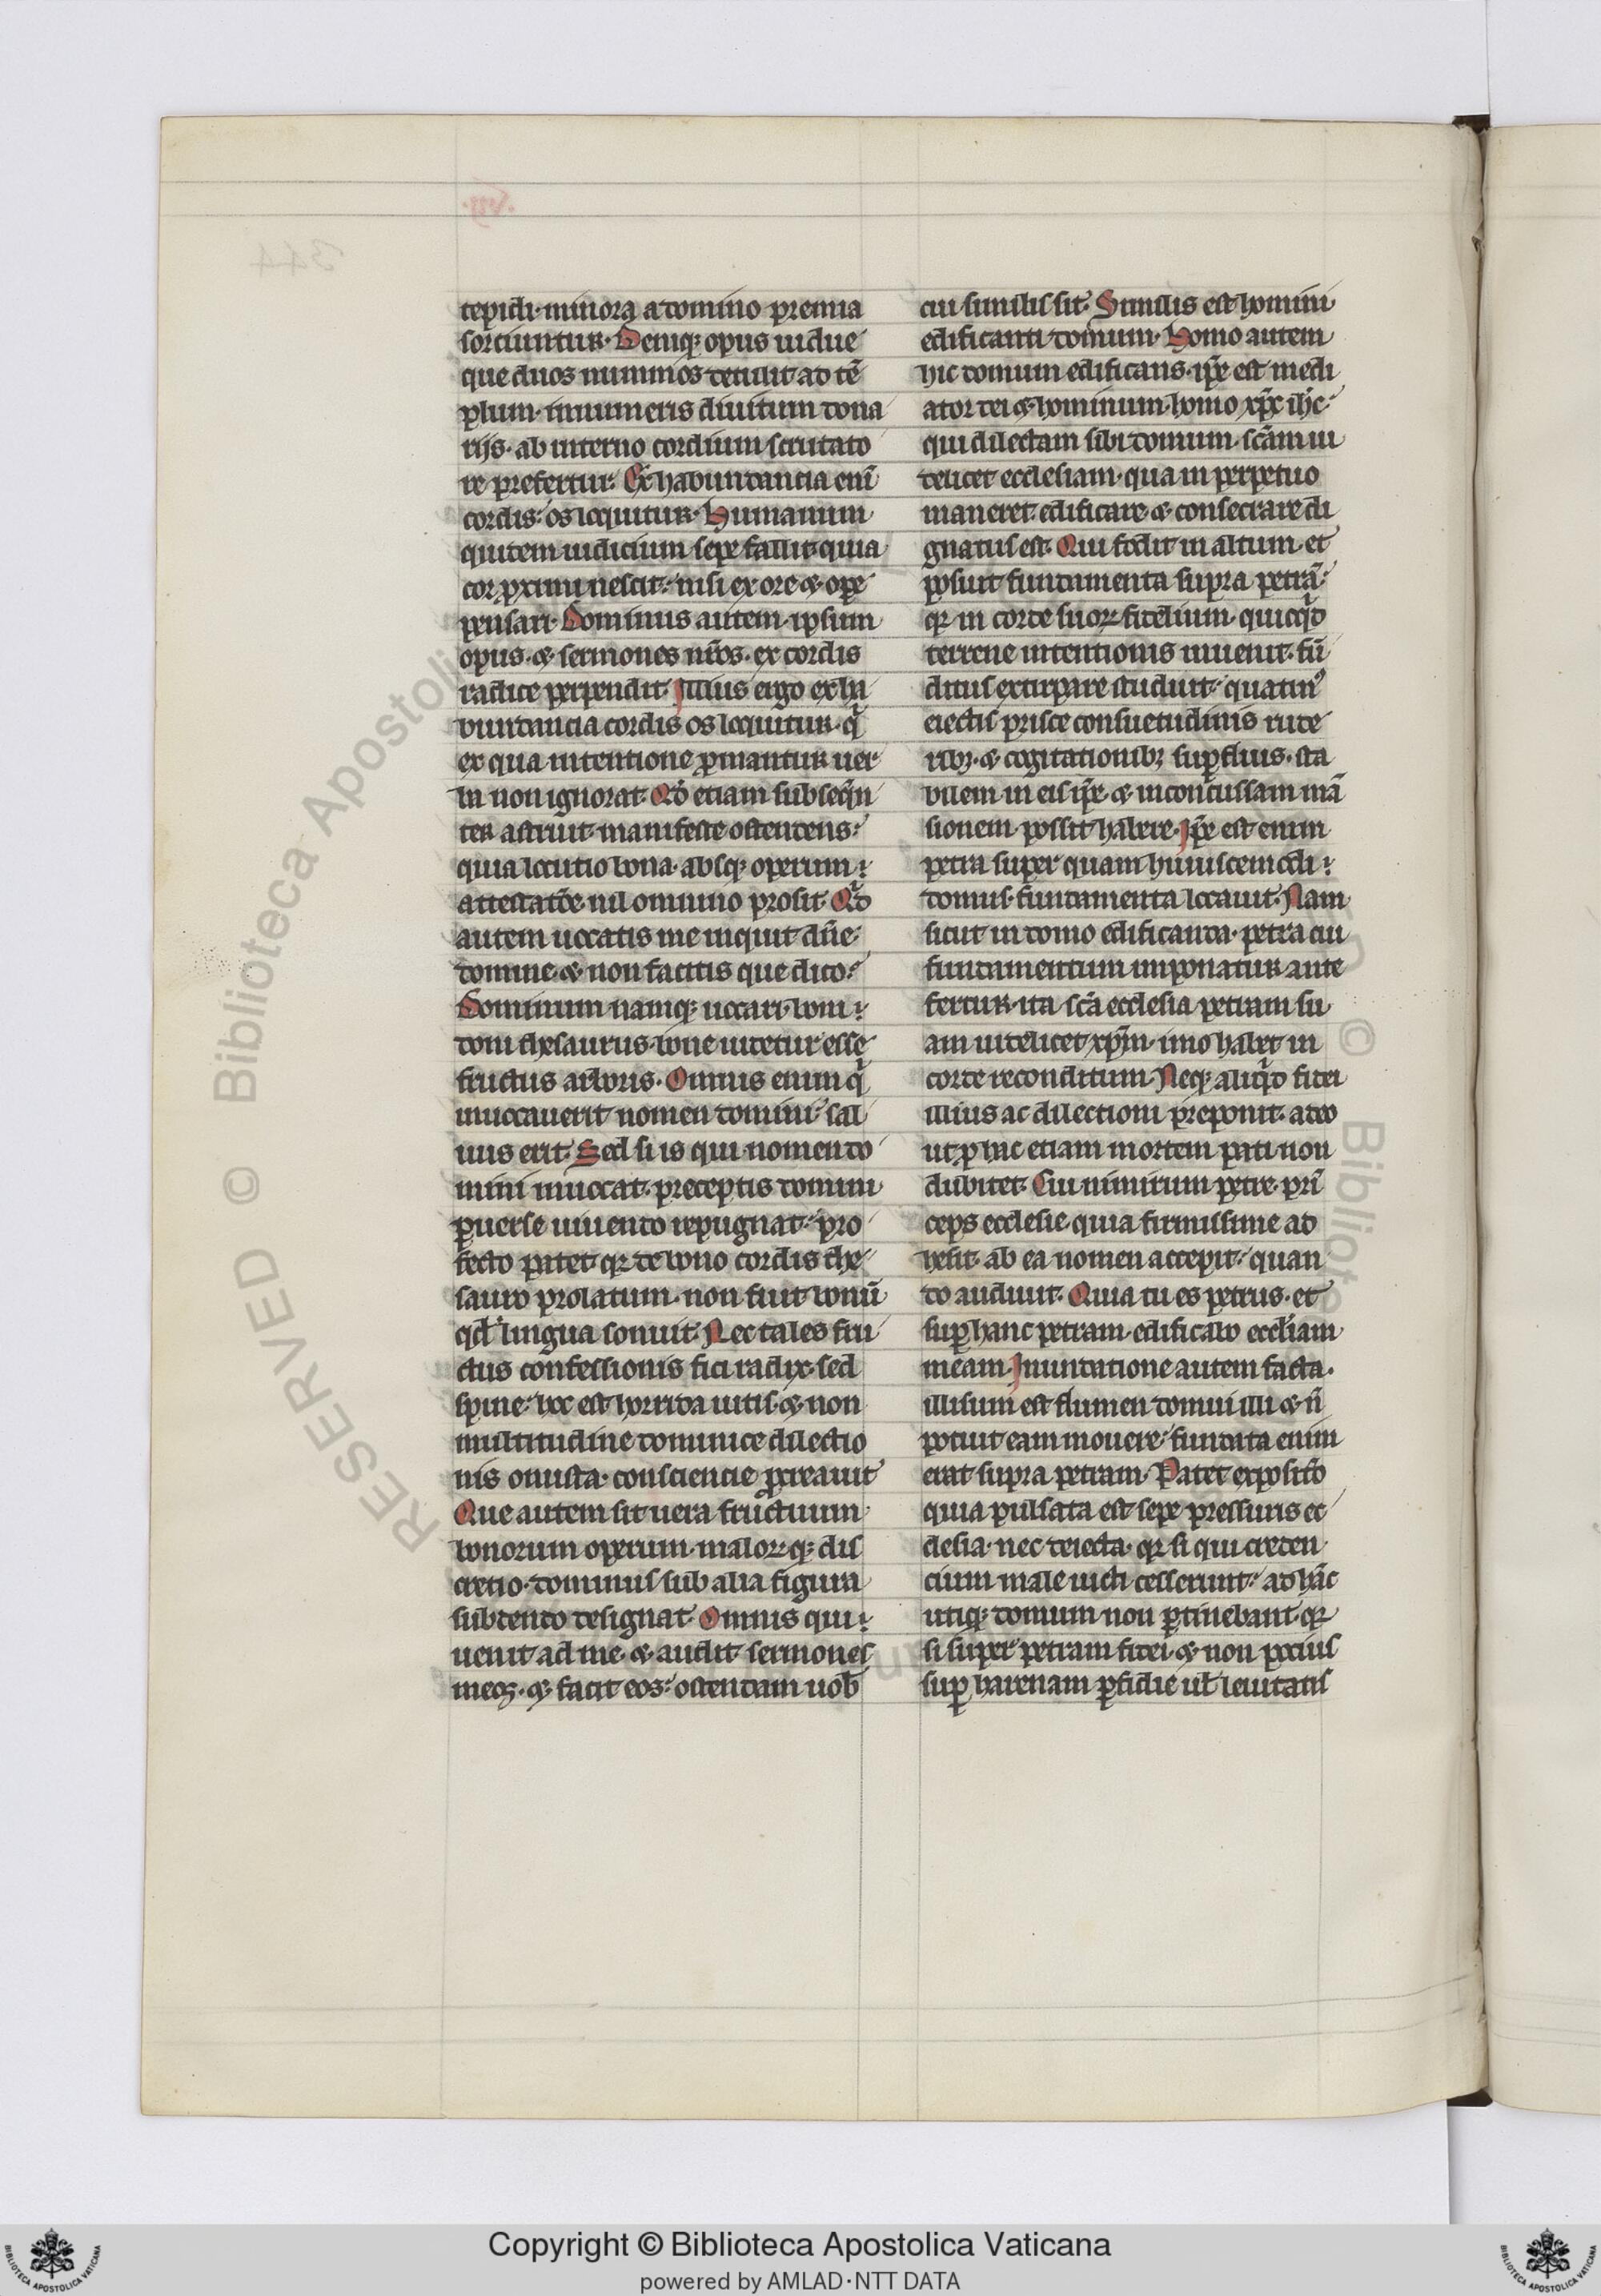 tepidi· minora a domino premia
sortiuntur· Deniq; opus uidue
que duos nummos detulit ad tē
plum· innumeris diuitum dona
rijs· ab interno cordium scrutato
re prefertur· Ex habundancia enī
cordis· os loquitur· Humanum
quidem iudicium sepe fallit quia
cor p̄ximi nescit· nisi ex ore & ope
pensari· Dominus autem· ipsum
opus· & sermones nr̄os· ex cordis
radice perpendit· Illius ergo ex ha
bundancia cordis os loquitur· q̄
ex qua intentione p̄mantur uer
ba non ignorat· Qd̄ etiam subseqn
ter astruit manifeste ostendens·
quia locutio bona· absq; operum
attestatōe· nil omnino prosit· Qd̄
autem uocatis me inquit dn̄e
domine· & non facitis que dico·
Dominum namq; uocari· boni
doni thesaurus· bone uidetur esse
fructus arboris· Omnis enim q̄
inuocauerit nomen domini· sal
uus erit· Sed si is qui nomen do
mini inuocat· preceptis domini
puerse uiuendo repugnat· pro
fecto patet qr de bono cordis the
sauro prolatum· non fuit bonū
qd lingua sonuit· Nec tales fru
ctus confessionis fici radix· sed
spine· hoc est horrida uitiis· & non
multitudine dominice dilectio
nis onusta· consciencie p̄creauit
Que autem sit uera fructuum
bonorum operum· malorq; dis
cretio· dominus sub alia figura
subdendo designat· Omnis qui
uenit ad me· & audit sermones
meos· & facit eos· ostendam uob
cui similis sit· Similis est homini
edificanti domum· Homo autem
hic domum edificans· ip̄e est medi
ator dei & hominum· homo xp̄c ihc·
qui dilectam sibi domum· scām ui
delicet ecclesiam· qua in perpetuo
maneret edificare & consecrare di
gnatus est· Qui fodit in altum· et
posuit fundamenta supra petrā·
qr in corde suor fidelium· quicqd
terrene intentionis inuenit· fū
ditus extirpare studuit· quatin
eiectis prisce consuetudinis rude
rib;· & cogitationib; supfluis· sta
bilem in eis ip̄e· & inconcussam mā
sionem· possit habere· Ip̄e est enim
petra super quam huiuscemodi
domus· fundamenta locauit· Nam
sicut in domo edificanda· petra cui
fundamentum imponatur ante
fertur· ita scā ecclesia petram su
am uidelicet xp̄m· imo habet in
corde reconditum· Neq; aliqd fidei
illius ac dilectioni preponit· adeo
ut p hac etiam mortem pati non
dubitet· Cui nimirum petre· prī
ceps ecclesie quia firmissime ad
hesit· ab ea nomen accepit· quan
do audiuit· Quia tu es petrus· et
sup hanc petram· edificabo eccliam
meam· Inundatione autem facta·
illisum est flumen domui illi & n̄
potuit eam mouere· fundata enim
erat supra petram· Patet expositō
quia pulsata est sepe pressuris ec
clesia· nec deiecta· qr si qui creden
cium male uicti cesserunt· ad hāc
utiq; domum non ptinebant· qr
si super petram fidei· & non pocius
sup harenam pfidie ul leuitatis
Copyright © Biblioteca Apostolica Vaticana
powered by AMLAD·NTT DATA